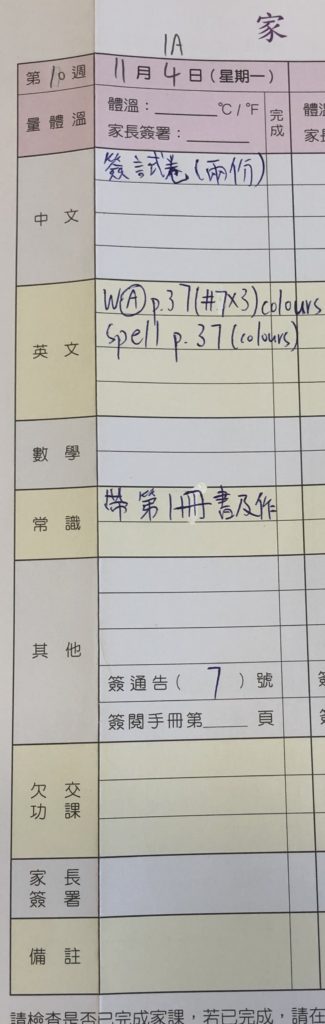 家
1A
第10週 11月4日(星期一)
量體溫 體溫：______℃/℉ 完成
家長簽署：______
中文 簽試卷(兩份)
英文 WⒶ p.37(#7x3)colours
spell p.37(colours)
數學
常識 帶第1冊書及作
其他
簽通告( 7 )號
簽閱手冊第____頁
欠交功課
家長簽署
備註
請檢查是否已完成家課，若已完成，請在